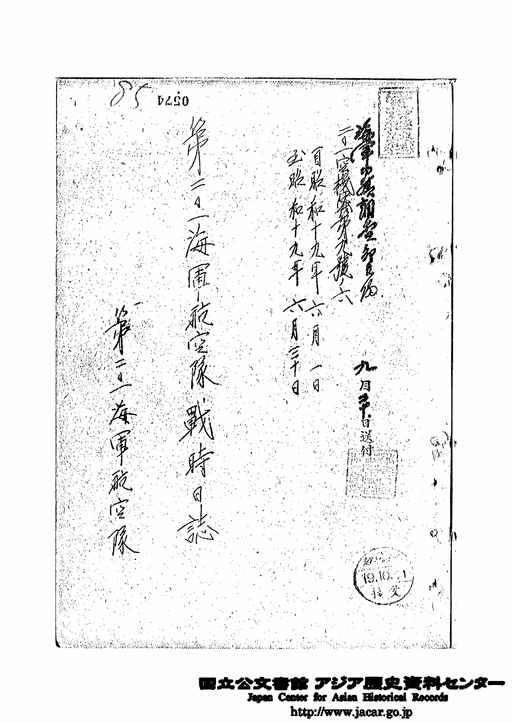 85
0574
二〇一空機密第九號ノ六
自昭和十九年六月一日
至昭和十九年六月三十日
第二〇一海軍航空隊戰時日誌
第二〇一海軍航空隊
九月三十日送付
19.10.1
接受
国立公文書館 アジア歴史資料センター
Japan Center for Asian Historical Records
http://www.jacar.go.jp